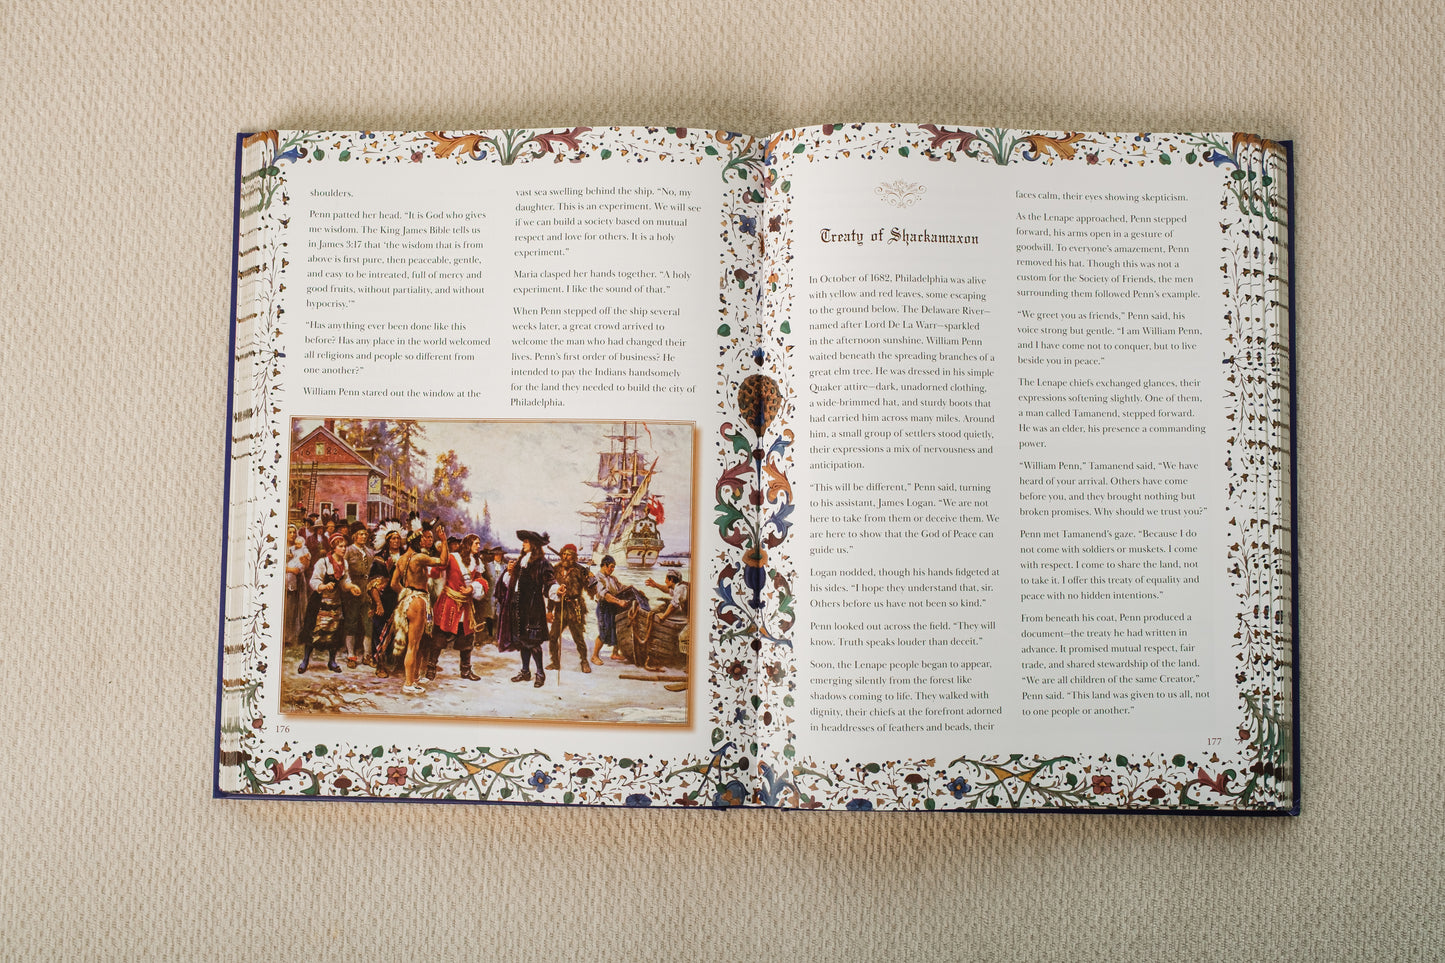 shoulders.
Penn patted her head. “It is God who gives
me wisdom. The King James Bible tells us
in James 3:17 that ‘the wisdom that is from
above is first pure, then peaceable, gentle,
and easy to be intreated, full of mercy and
good fruits, without partiality, and without
hypocrisy.’”
“Has anything ever been done like this
before? Has any place in the world welcomed
all religions and people so different from
one another?”
William Penn stared out the window at the
vast sea swelling behind the ship. “No, my
daughter. This is an experiment. We will see
if we can build a society based on mutual
respect and love for others. It is a holy
experiment.”
Maria clasped her hands together. “A holy
experiment. I like the sound of that.”
When Penn stepped off the ship several
weeks later, a great crowd arrived to
welcome the man who had changed their
lives. Penn’s first order of business? He
intended to pay the Indians handsomely
for the land they needed to build the city of
Philadelphia.
176
Treaty of Shackamaxon
In October of 1682, Philadelphia was alive
with yellow and red leaves, some escaping
to the ground below. The Delaware River—
named after Lord De La Warr—sparkled
in the afternoon sunshine. William Penn
waited beneath the spreading branches of a
great elm tree. He was dressed in his simple
Quaker attire—dark, unadorned clothing,
a wide-brimmed hat, and sturdy boots that
had carried him across many miles. Around
him, a small group of settlers stood quietly,
their expressions a mix of nervousness and
anticipation.
“This will be different,” Penn said, turning
to his assistant, James Logan. “We are not
here to take from them or deceive them. We
are here to show that the God of Peace can
guide us.”
Logan nodded, though his hands fidgeted at
his sides. “I hope they understand that, sir.
Others before us have not been so kind.”
Penn looked out across the field. “They will
know. Truth speaks louder than deceit.”
Soon, the Lenape people began to appear,
emerging silently from the forest like
shadows coming to life. They walked with
dignity, their chiefs at the forefront adorned
in headdresses of feathers and beads, their
faces calm, their eyes showing skepticism.
As the Lenape approached, Penn stepped
forward, his arms open in a gesture of
goodwill. To everyone’s amazement, Penn
removed his hat. Though this was not a
custom for the Society of Friends, the men
surrounding them followed Penn’s example.
“We greet you as friends,” Penn said, his
voice strong but gentle. “I am William Penn,
and I have come not to conquer, but to live
beside you in peace.”
The Lenape chiefs exchanged glances, their
expressions softening slightly. One of them,
a man called Tamanend, stepped forward.
He was an elder, his presence a commanding
power.
“William Penn,” Tamanend said, “We have
heard of your arrival. Others have come
before you, and they brought nothing but
broken promises. Why should we trust you?”
Penn met Tamanend’s gaze. “Because I do
not come with soldiers or muskets. I come
with respect. I come to share the land, not
to take it. I offer this treaty of equality and
peace with no hidden intentions.”
From beneath his coat, Penn produced a
document—the treaty he had written in
advance. It promised mutual respect, fair
trade, and shared stewardship of the land.
“We are all children of the same Creator,”
Penn said. “This land was given to us all, not
to one people or another.”
177